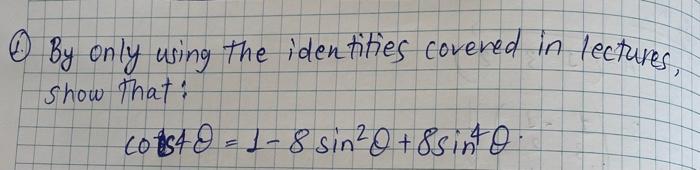 ① By only using the identities covered in lectures,
show that:
cos4θ = 1 - 8 sin²θ + 8 sin⁴θ.